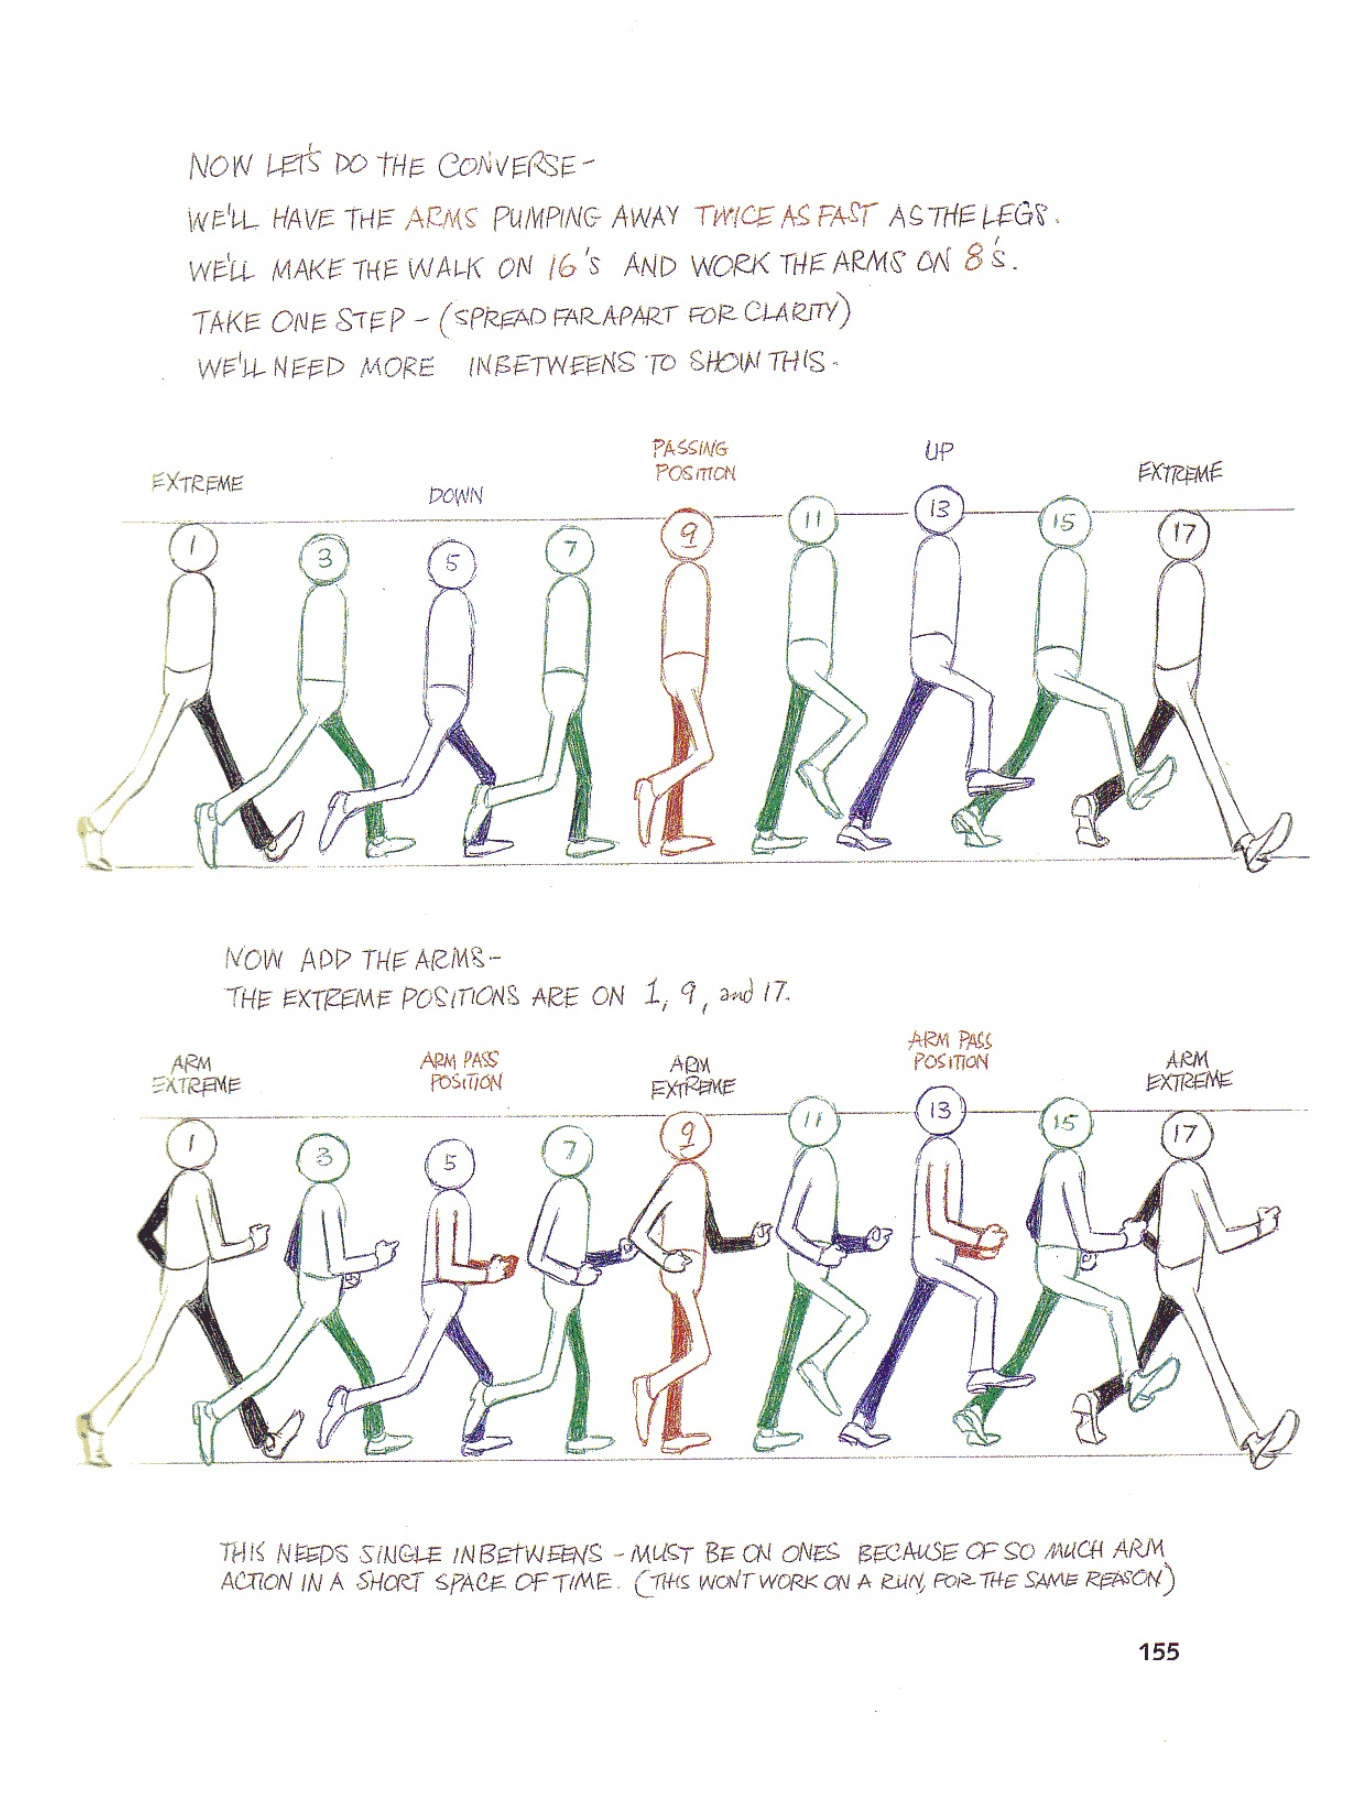 NOW LET'S DO THE CONVERSE -
WE'LL HAVE THE ARMS PUMPING AWAY TWICE AS FAST AS THE LEGS.
WE'LL MAKE THE WALK ON 16'S AND WORK THE ARMS ON 8'S.
TAKE ONE STEP - (SPREAD FAR APART FOR CLARITY)
WE'LL NEED MORE INBETWEENS TO SHOW THIS.
EXTREME
DOWN
PASSING
POSITION
UP
EXTREME
1 3 5 7 9 11 13 15 17
NOW ADD THE ARMS -
THE EXTREME POSITIONS ARE ON 1, 9, and 17.
ARM
EXTREME
ARM PASS
POSITION
ARM
EXTREME
ARM PASS
POSITION
ARM
EXTREME
1 3 5 7 9 11 13 15 17
THIS NEEDS SINGLE INBETWEENS - MUST BE ON ONES BECAUSE OF SO MUCH ARM
ACTION IN A SHORT SPACE OF TIME. (THIS WON'T WORK ON A RUN, FOR THE SAME REASON)
155